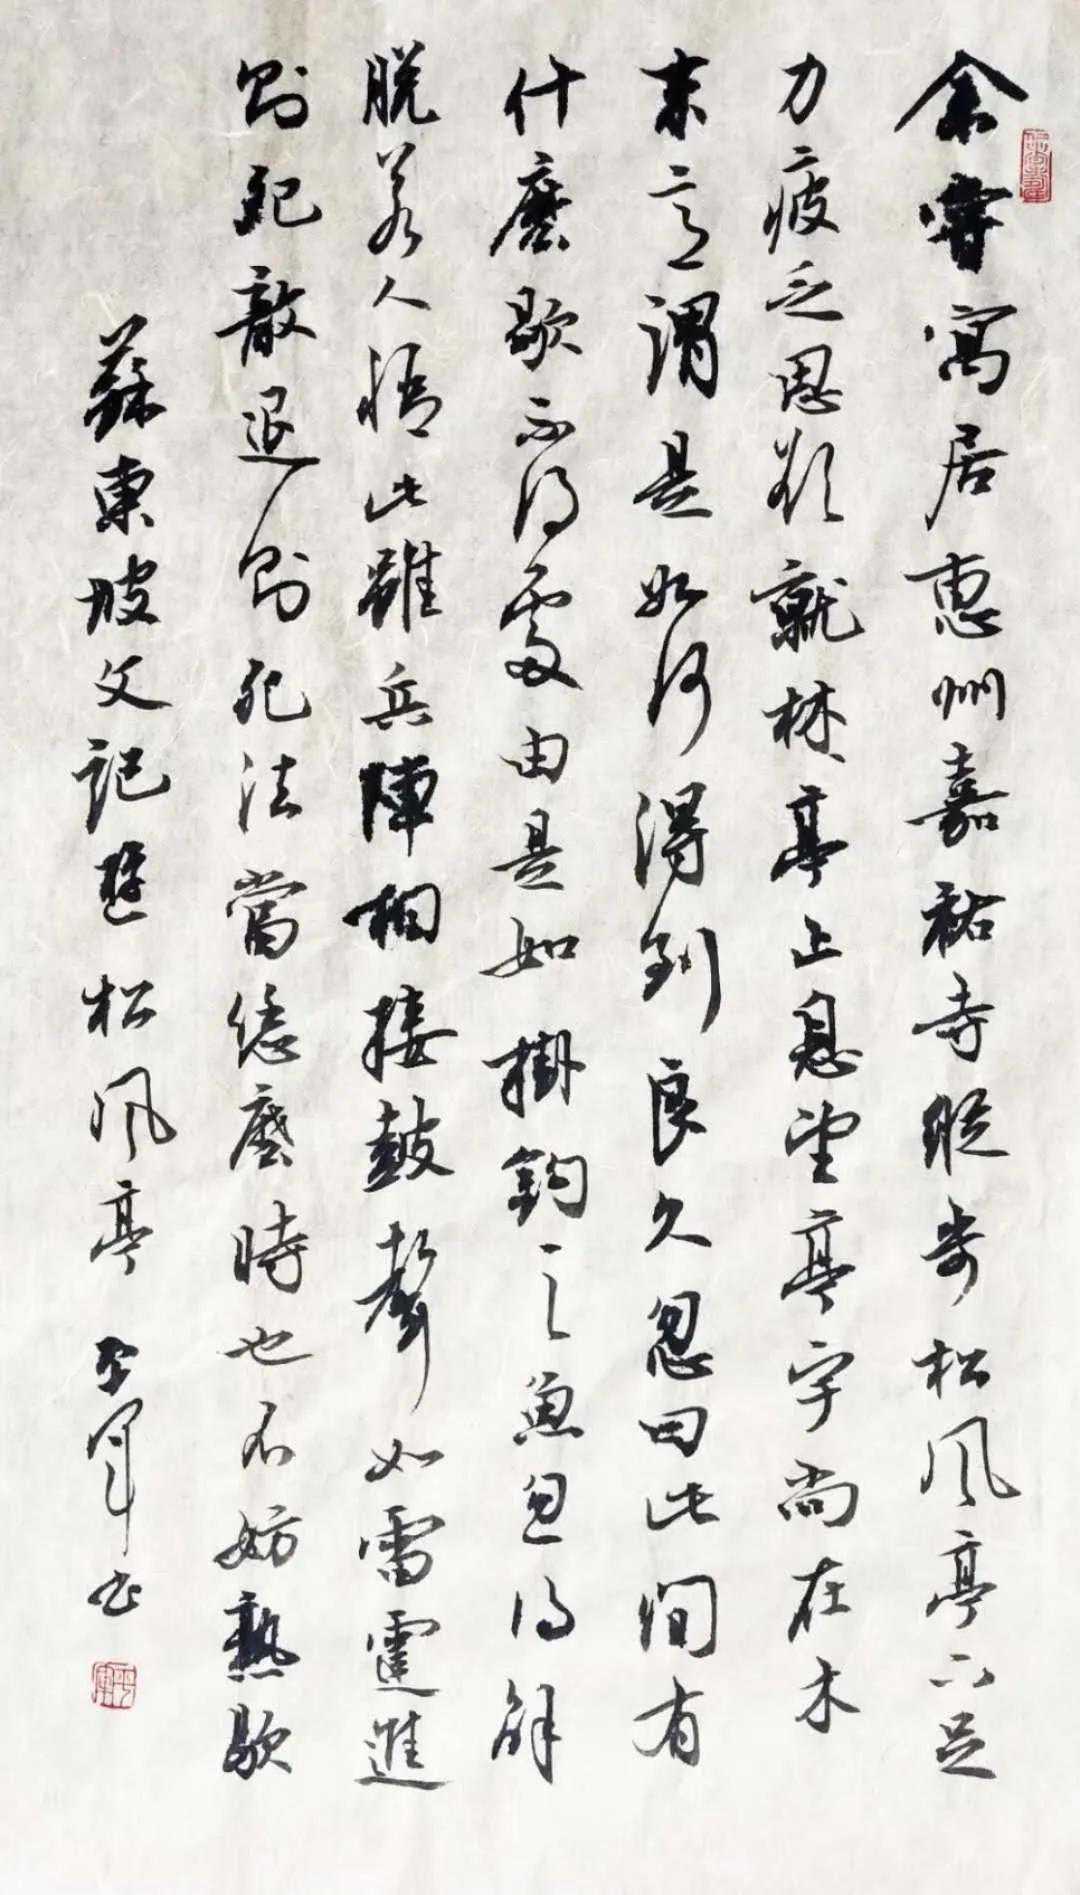 余嘗寓居惠州嘉祐寺縱步松風亭下足
力疲乏思欲就林亭止息望亭宇尚在木
末意謂是如何得到良久忽曰此間有
什麼歇不得處由是如掛鉤之魚忽得解
脫若人悟此雖兵陣相接鼓聲如雷霆進
則死敵退則死法當恁麼時也不妨熟歇
蘇東坡文記遊松風亭 軍書